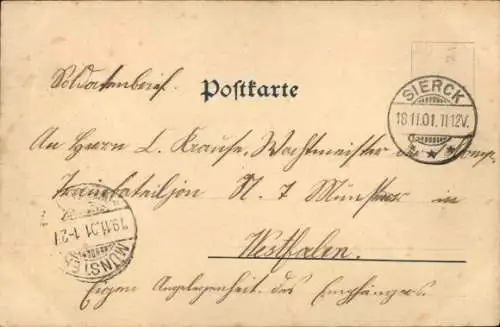 Soldatenbrief.
Postkarte
SIERCK
18.11.01. 11-12V.
An Herrn L. Krause, Wachtmeister
Trainbatailjon N. 7 Münster in
19.11.01 1-2
MÜNST
Westfalen.
Eigen Angelegenheit des Empfängers.